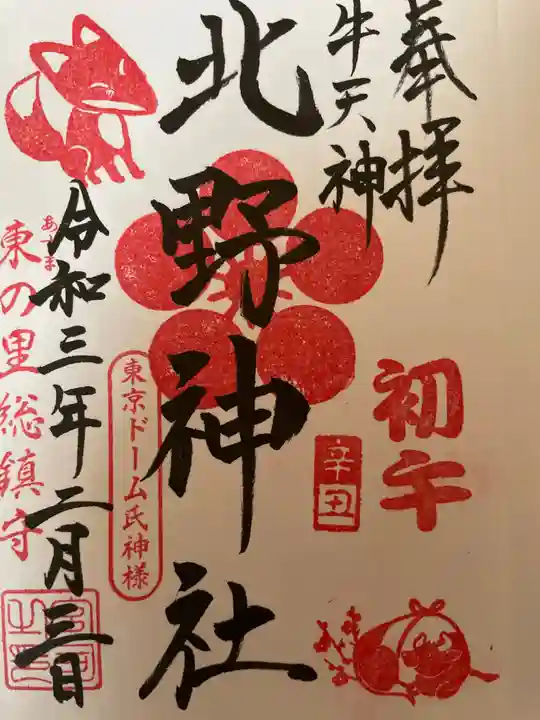 奉拝
牛天神
初午
辛丑
北野神社
東京ドーム氏神様
令和三年二月三日
あずま
東の里総鎮守